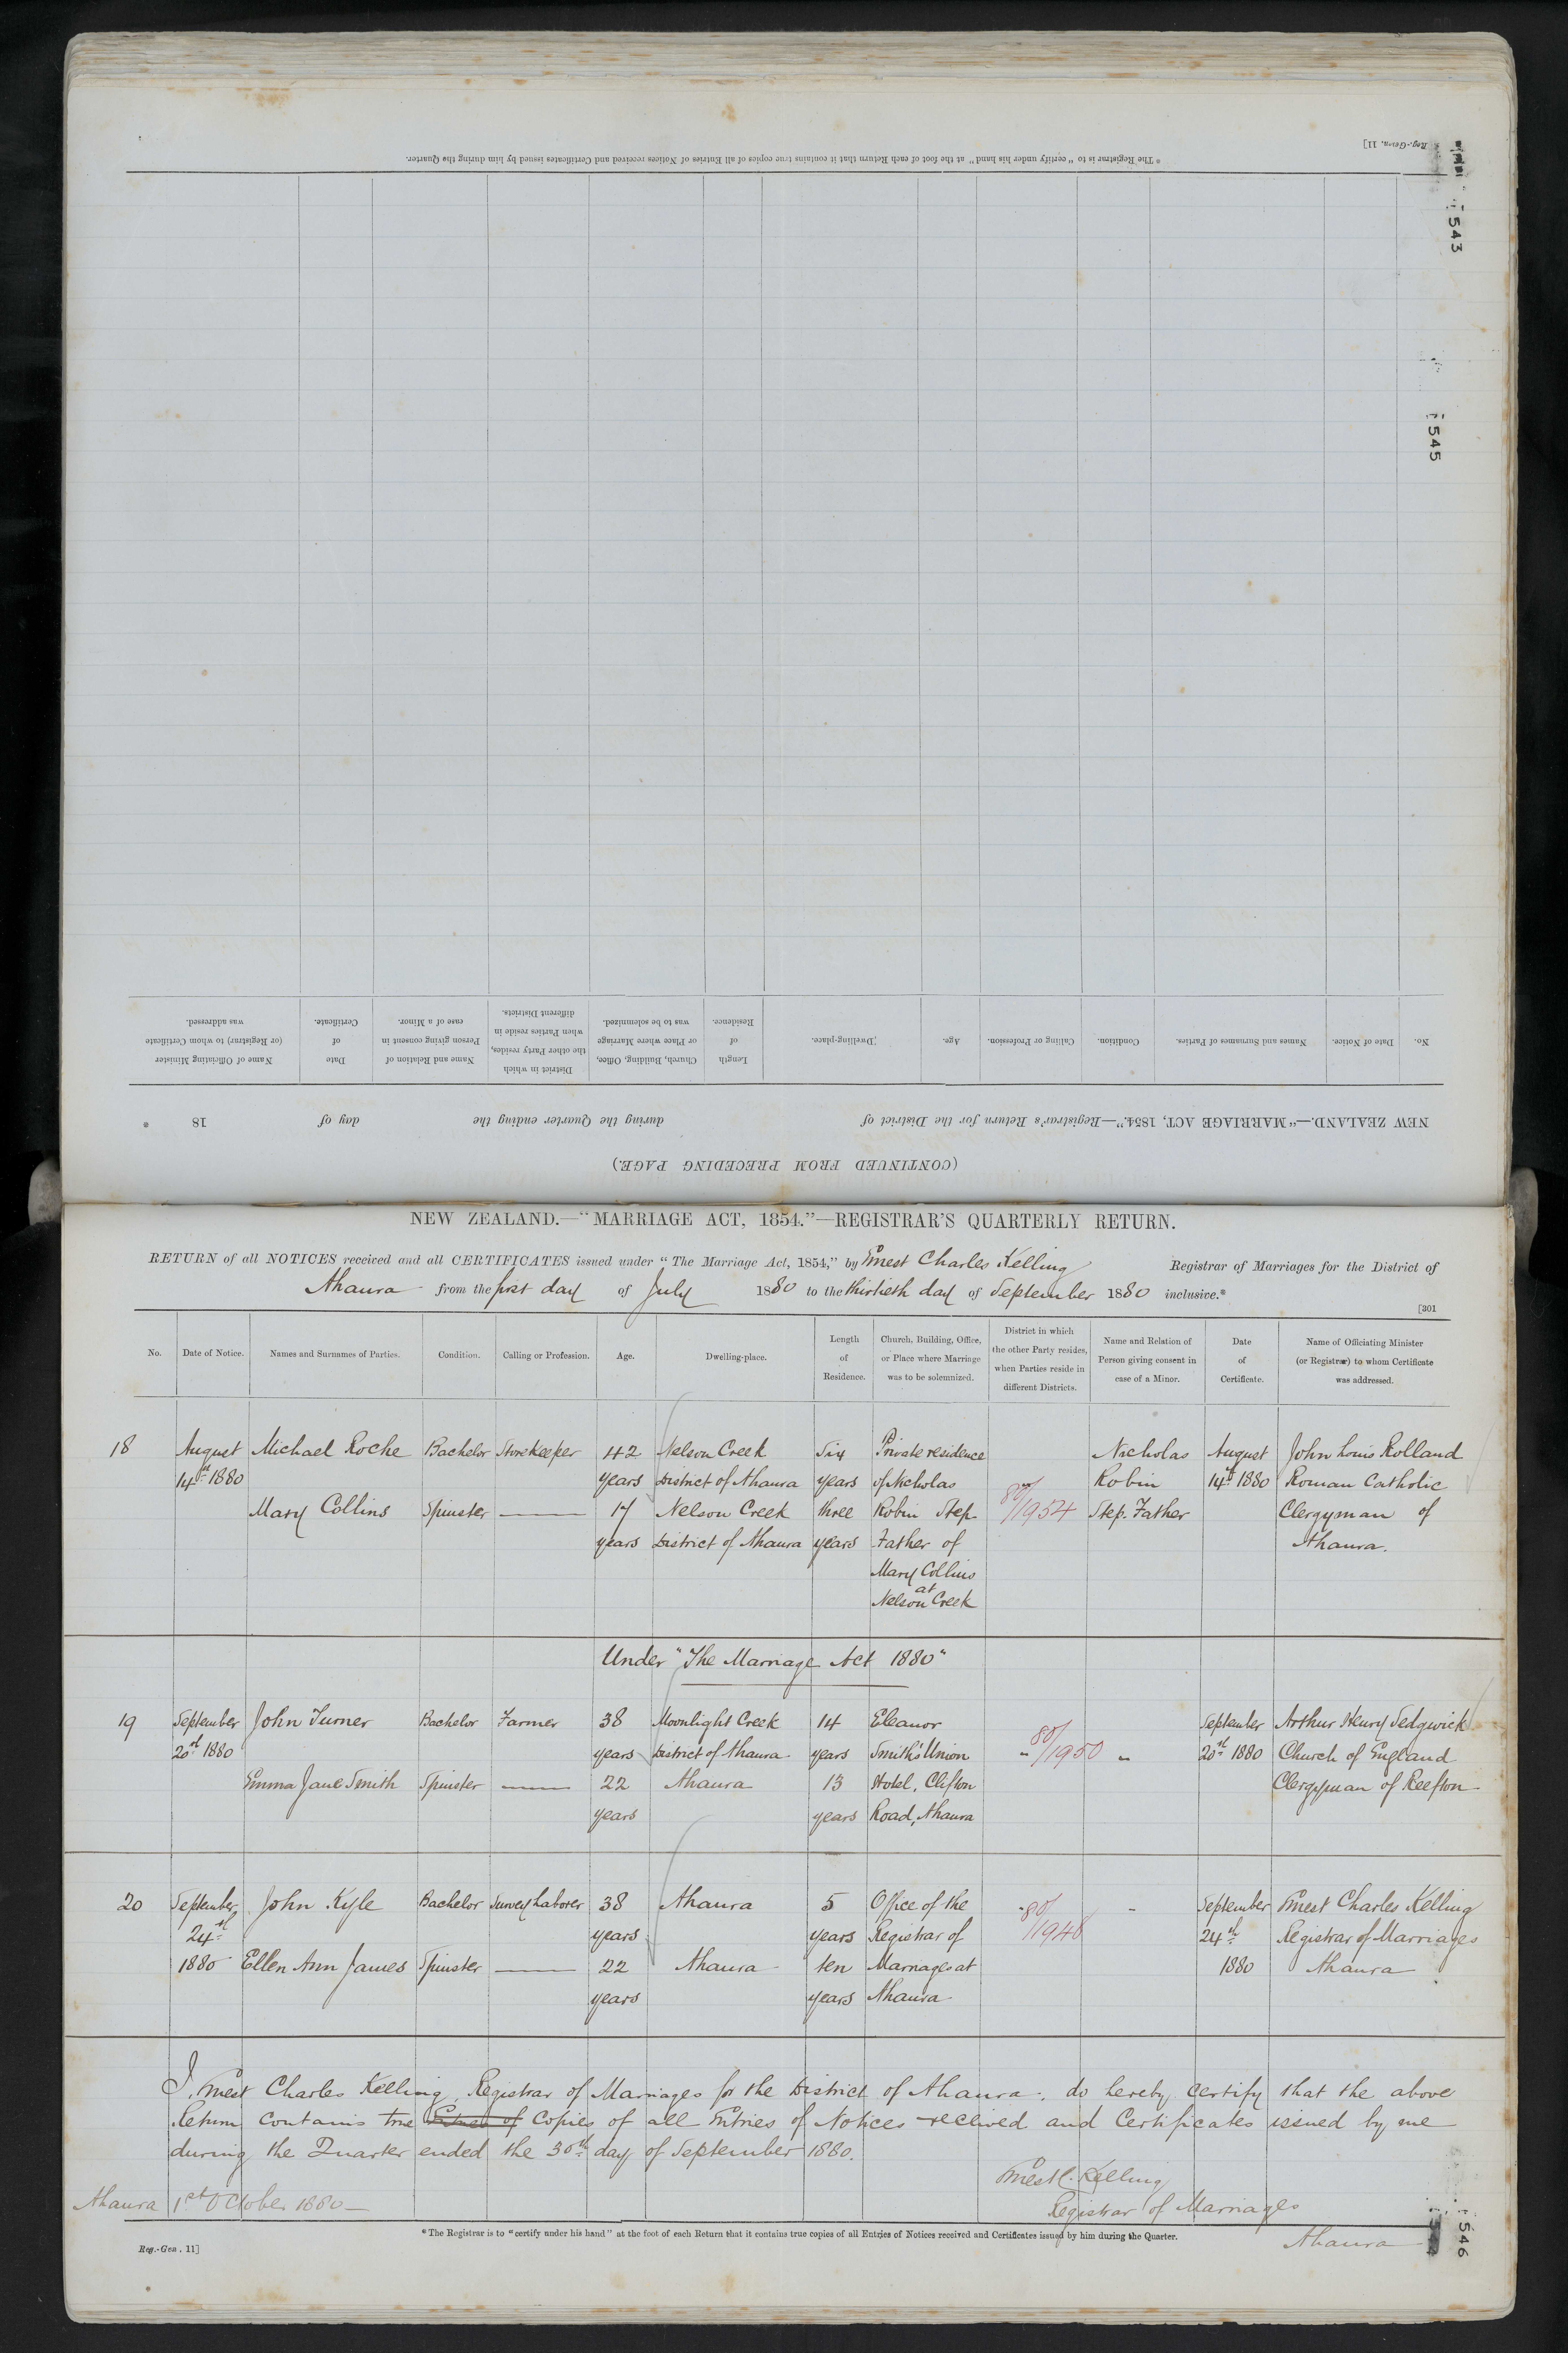 Reg.-Gen. 11]
* The Registrar is to "certify under his hand" at the foot of each Return that it contains true copies of all Entries of Notices received and Certificates issued by him during the Quarter.
543
545
Name of Officiating Minister (or Registrar) to whom Certificate was addressed.
Date of Certificate.
Name and Relation of Person giving consent in case of a Minor.
District in which the other Party resides, when Parties reside in different Districts.
Church, Building, Office, or Place where Marriage was to be solemnized.
Length of Residence.
Dwelling-place.
Age.
Calling or Profession.
Condition.
Names and Surnames of Parties.
Date of Notice.
No.
NEW ZEALAND.—"MARRIAGE ACT, 1854."—Registrar's Return for the District of during the Quarter ending the day of 18
(CONTINUED FROM PRECEDING PAGE.)
NEW ZEALAND.—"MARRIAGE ACT, 1854."—REGISTRAR'S QUARTERLY RETURN.
RETURN of all NOTICES received and all CERTIFICATES issued under "The Marriage Act, 1854," by Ernest Charles Kelling Registrar of Marriages for the District of
Ahaura from the first day of July 1880 to the thirtieth day of September 1880 inclusive.*
[301
No. Date of Notice. Names and Surnames of Parties. Condition. Calling or Profession. Age. Dwelling-place. Length of Residence. Church, Building, Office, or Place where Marriage was to be solemnized. District in which the other Party resides, when Parties reside in different Districts. Name and Relation of Person giving consent in case of a Minor. Date of Certificate. Name of Officiating Minister (or Registrar) to whom Certificate was addressed.
18 August Michael Roche Bachelor Storekeeper 42 Nelson Creek Six Private residence Nicholas August John Louis Rolland
14th 1880 years District of Ahaura years of Nicholas Robin 14th 1880 Roman Catholic
Mary Collins Spinster —— 17 Nelson Creek three Robin Step 80/1954 Step. Father Clergyman of
years District of Ahaura years Father of Ahaura.
Mary Collins
at
Nelson Creek
Under "The Marriage Act 1880"
19 September John Turner Bachelor Farmer 38 Moonlight Creek 14 Eleanor September Arthur Henry Sedgwick
20th 1880 years District of Ahaura years Smith's Union " 80/1950 " 20th 1880 Church of England
Emma Jane Smith Spinster —— 22 Ahaura 13 Hotel, Clifton Clergyman of Reefton
years years Road, Ahaura
20 September John Kyle Bachelor Survey Laborer 38 Ahaura 5 Office of the 80/1948 " September Ernest Charles Kelling
24th years years Registrar of 24th Registrar of Marriages
1880 Ellen Ann James Spinster —— 22 Ahaura ten Marriages at 1880 Ahaura
years years Ahaura
I, Ernest Charles Kelling, Registrar of Marriages for the District of Ahaura, do hereby certify that the above
Return contains true Copies of all Entries of Notices received and Certificates issued by me
during the Quarter ended the 30th day of September 1880.
Ernest C. Kelling
Ahaura 1st October 1880— Registrar of Marriages
Ahaura
* The Registrar is to "certify under his hand" at the foot of each Return that it contains true copies of all Entries of Notices received and Certificates issued by him during the Quarter.
Reg.-Gen. 11]
546